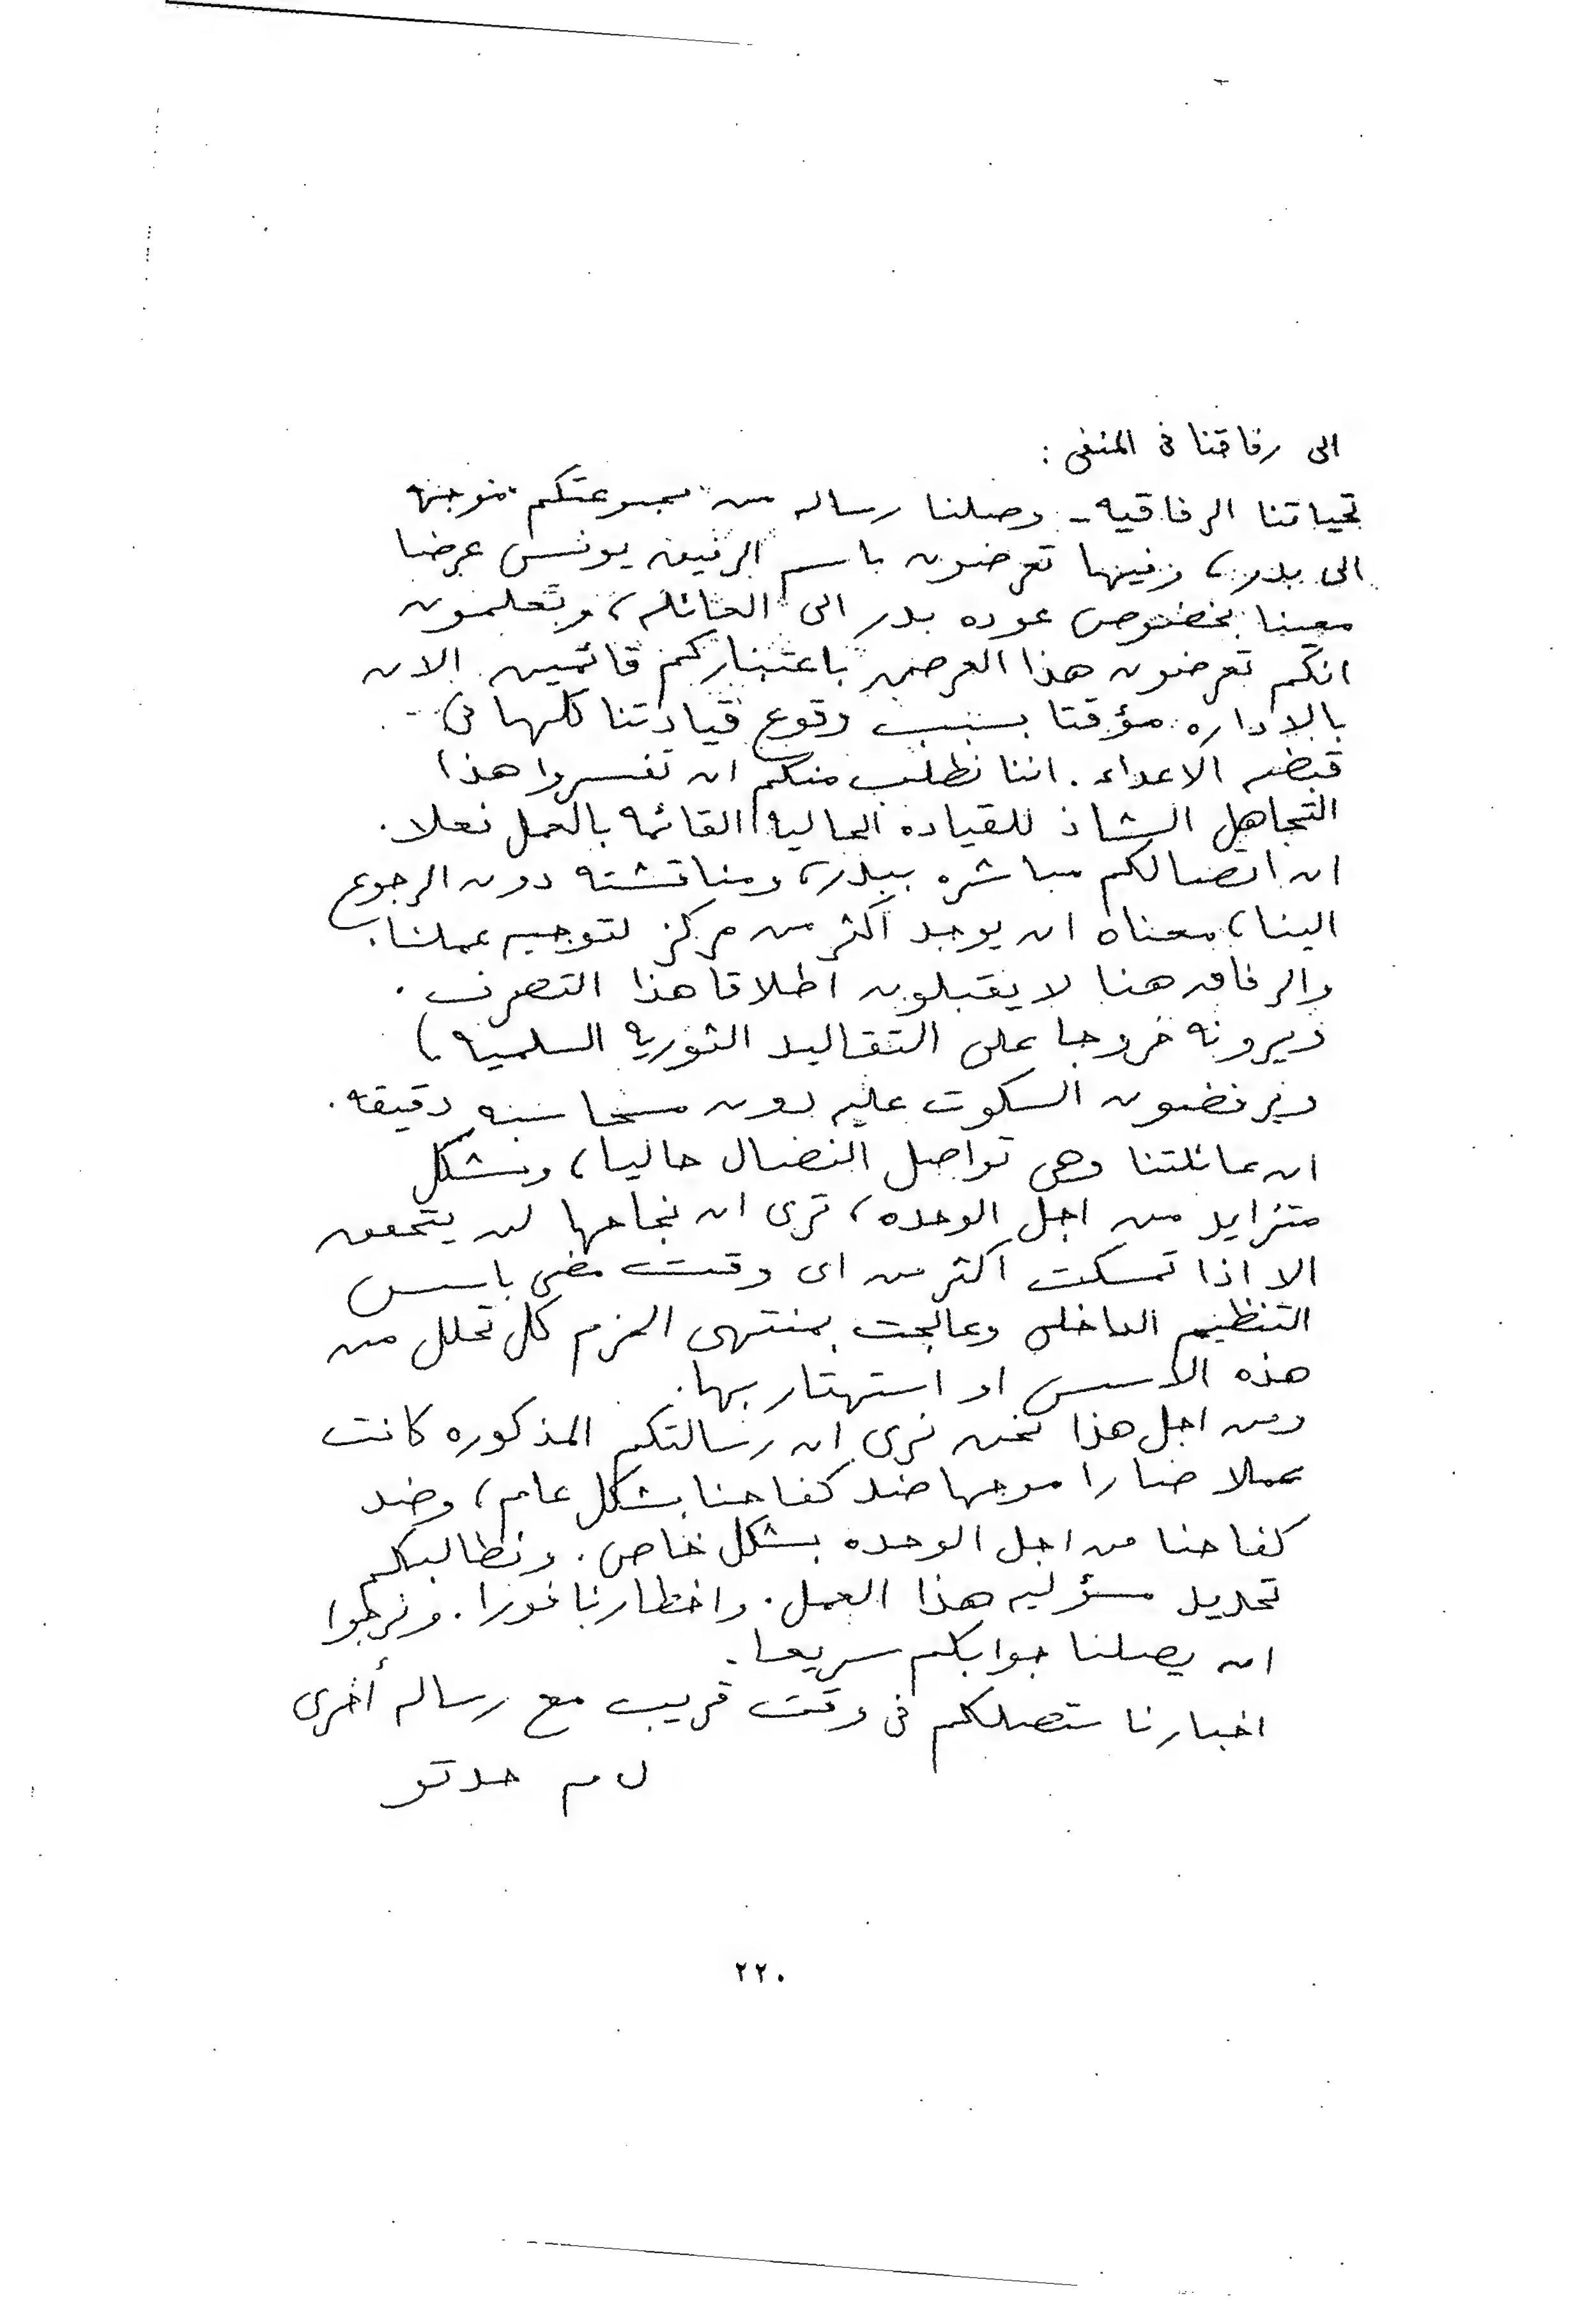 الى رفاقنا فى المنفى :
تحياتنا الرفاقيه - وصلنا رساله من مجموعتكم موجهه
الى بدر، وفيها تعرضون باسم الرفيق يونس عرضا
معينا بخصوص عوده بدر الى العائله، وتعلمون
انكم تعرضون هذا العرض باعتباركم قائمين الان
بالاداره مؤقتا بسبب وقوع قيادتنا كلها فى
قبضه الاعداء . اننا نطلب منكم ان تفسروا هذا
التجاهل الشاذ للقياده الحاليه القائمه بالعمل فعلا .
ان اتصالكم مباشره ببدر، ومناقشته دون الرجوع
الينا، معناه ان يوجد أكثر من مركز لتوجيه عملنا .
والرفاق هنا لا يقبلون اطلاقا هذا التصرف .
ويرونه خروجا على التقاليد الثوريه السلميه .)
ويرفضون السكوت عليه بدون محاسبه دقيقه .
ان عائلتنا وهى تواصل النضال حاليا، وبشكل
متزايد من اجل الوحده، ترى ان نجاحها لن يتحقق
الا اذا تمسكت أكثر من اى وقت مضى باسس
التنظيم الداخلى وعالجت بمنتهى الحزم كل تحلل من
هذه الاسس او استهتار بها .
ومن اجل هذا نحن نرى ان رسالتكم المذكوره كانت
عملا ضارا موجها ضد كفاحنا بشكل عام، وضد
كفاحنا من اجل الوحده بشكل خاص . ونطالبكم
تحديد مسؤليه هذا العمل . واخطارنا فورا . ونرجوا
ان يصلنا جوابكم سريعا .
اخبارنا ستصلكم فى وقت قريب مع رساله أخرى
ل م حدتو
٢٢٠